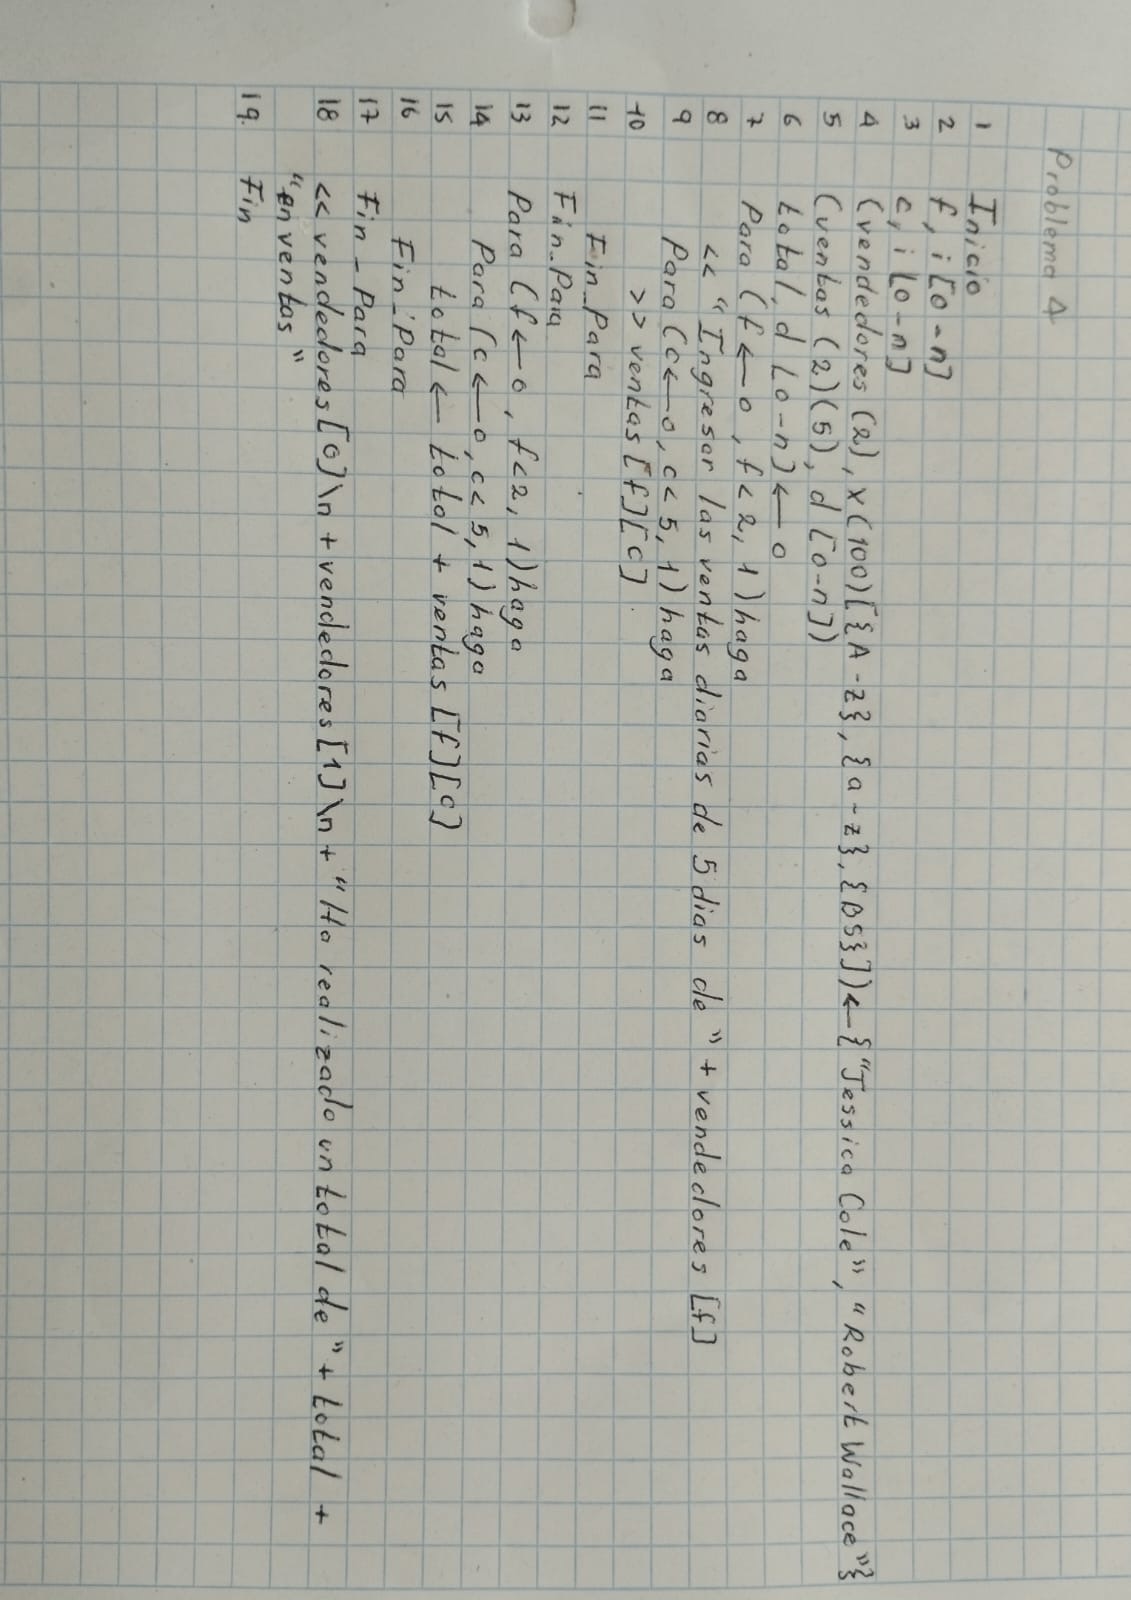 Problema 4
1 Inicio
2 f, i [0-n]
3 c, i [0-n]
4 (vendedores (2), x(100)[{A-z}, {a-z}, {DS}])←{"Jessica Cole", "Robert Wallace"}
5 (ventas (2)(5), d [0-n])
6 total, d [0-n]←0
7 Para (f←0, f<2, 1) haga
8 << "Ingresar las ventas diarias de 5 dias de" + vendedores [f]
9 Para (c←0, c<5, 1) haga
10 >> ventas [f][c]
11 Fin_Para
12 Fin_Para
13 Para (f←0, f<2, 1) haga
14 Para (c←0, c<5, 1) haga
15 total← total + ventas [f][c]
16 Fin_Para
17 Fin_Para
18 << vendedores [0]\n + vendedores [1]\n + "Ha realizado un total de" + total +
"en ventas"
19. Fin